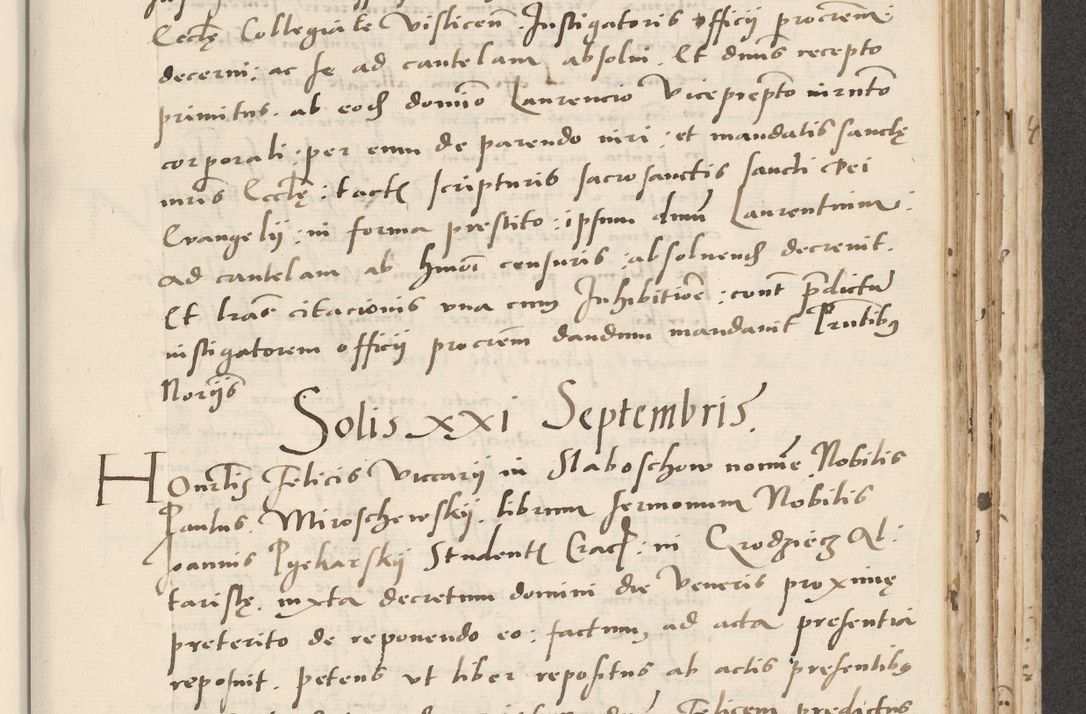 Eccl̄ę Collegiatę Vislicen̄. Instigatoris officij procrem̄
decerni: ac se ad cautelam absolui. Et dnūs recepto
primitus. ab eod̄ domīo Laurencio Viceprep̄to iurn̄to
corporali: per eum de parendo iuri: et mandatis sanctę
mr̄is Eccl̄ę: tactꝭ scripturis sacrosanctis sancti Dei
Evangelij: in forma prestito: ipsum dnm̄ Laurentium:
ad cautelam ab hm̄oi censuris: absoluend̄ decreuit.
Et lrās citacionis vna cum Inhibitiōe: cont̄ p̄dictū
instigatorem officij procrēm dandum mandauit Prn̄tibꝫ
Norijs
Solis XXI Septembris.
Honr̄lis Felicis Viccarij in Slaboschow nomīe Nobilis
Paulus Miroschewskij. librum sermonum Nobilis
Joannis Pyekarskij Studentꝭ Crac̄: in Grodziecz Al:
taristę. iuxta decretum domini die Veneris proximę
preterito de reponendo eo: factum, ad acta presentia
reposuit. petens vt liber repositus ab actis presentibꝫ
Felicem predictus